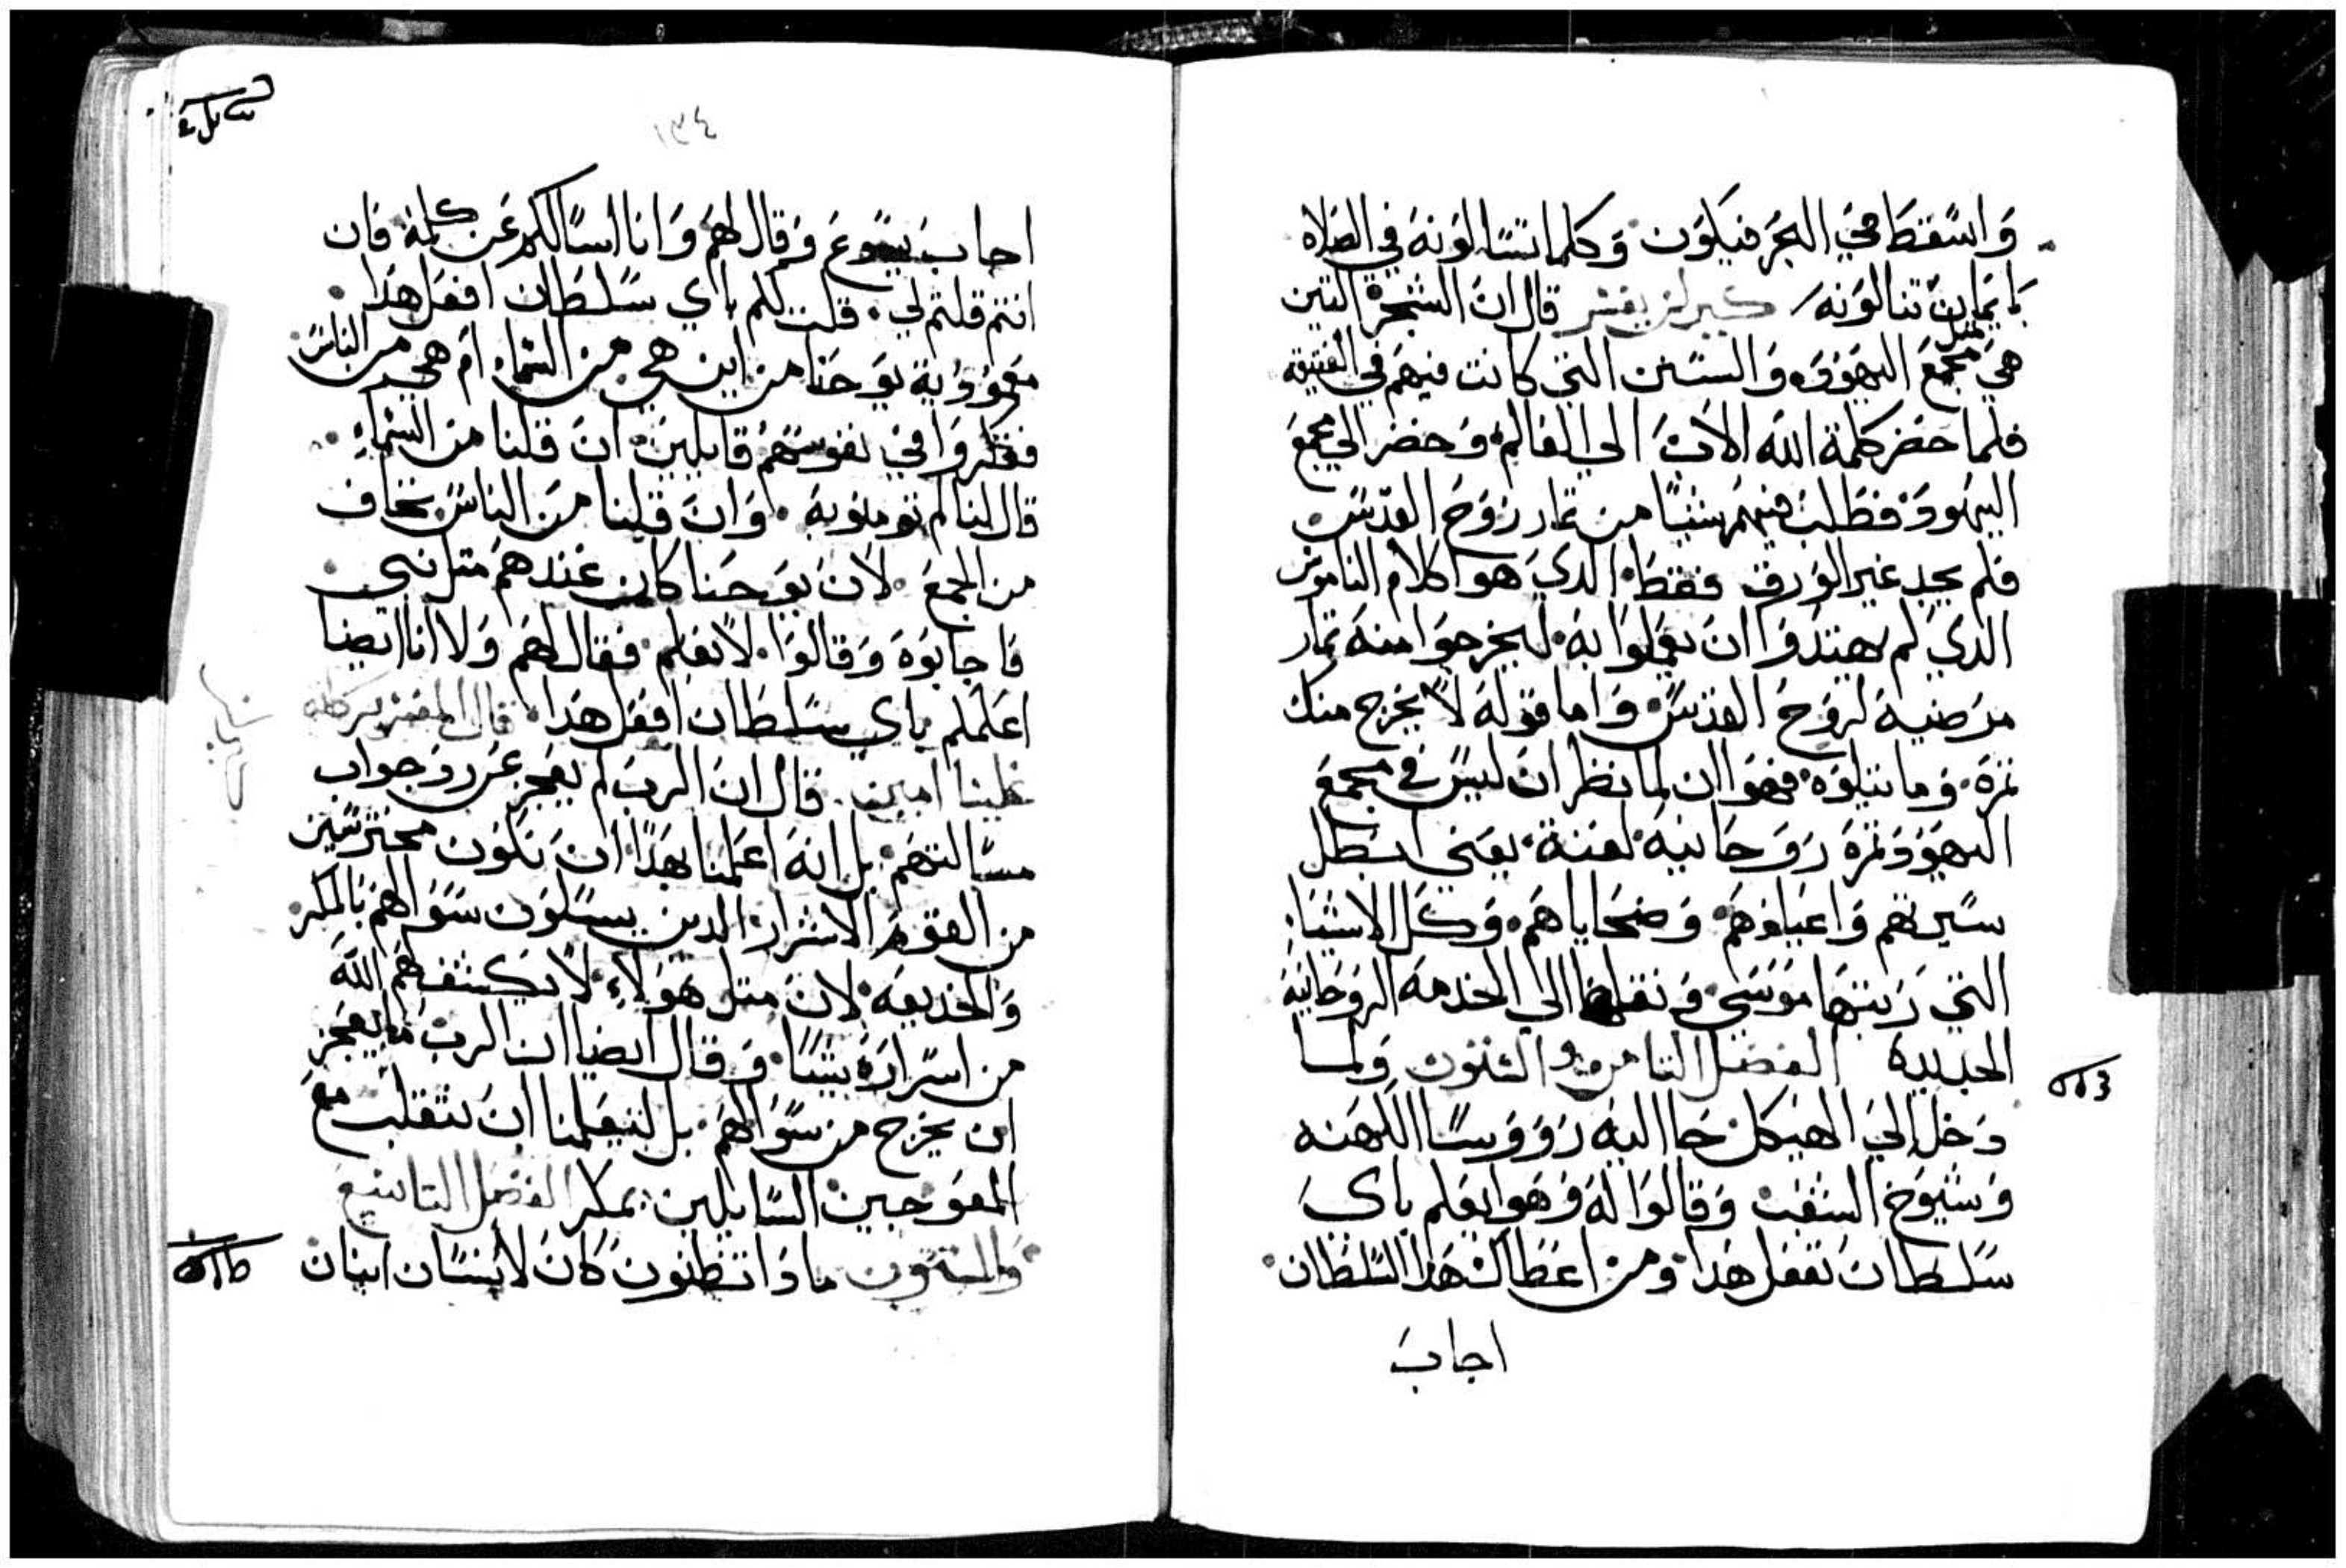 واسقط في البحر فيكون وكلما تسالونه في الصلاه
بايمان تنالونه كيرلس يفسر قال ان الشجرة التين
هي مثل مجمع اليهود والسنين التي كانت فيهم في العتيقه
فلما حضر كلمة الله الاب الي العالم وحضر الي مجمع
اليهود فطلب فيهم شيئا من تمار روح القدس
فلم يجد غير الورق فقط الدي هوا كلام الناموس
الدي لم يهتدوا ان يعملوا به ليخرجوا منه تمار
مرضيه لروح القدس واما قوله لا يخرج منك
تمرة وما يتلوه فهوا ان لما نظر ان ليس في مجمع
اليهود تمرة روحانيه لعنة يعني ابطل
سيرتهم واعيادهم وضحاياهم وكل الاشياء
التي رتبتها موسي ونقلها الي الخدمه الروحانيه
الجديدة الفصل التامن و الستون ولما
دخل الي الهيكل جا اليه رووسا الكهنه
وشيوخ الشعب وقالوا له وهو يعلم باي
سلطان تفعل هدا ومن اعطاك هدا السلطان
اجاب
١٣٤
اجاب يسوع وقال لهم وانا اسالكم عن كلمة فان
انتم قلتم لي قلت لكم باي سلطان افعل هدا
معمودية يوحنا من اين هي من السماء ام هي من الناس
ففكروا في نفوسهم قايلين ان قلنا من السماء
قال لنا لم تومنوا به وان قلنا من الناس نخاف
من الجمع لان يوحنا كان عندهم متل نبي
فاجابوه وقالوا لا نعلم فقال لهم ولا انا ايضا
اعلمكم باي سلطان افعل هدا قال المفسر بركاته
علينا امين قال ان الرب لم يعجز عن رد جواب
مسالتهم بل انه اعلمنا بهدا ان نكون محترسين
من القوم الاشرار الدين يسلون سوالهم بالمكر
والخديعه لان متل هولاء لا يكشف لهم الله
من اسراره شيئا وقال ايضا ان الرب ما يعجز
ان يخرج من سوالهم بل لتعلمنا ان نتقلب مع
المعوجين السايلين بمكر الفصل التاسع
والستون مادا تظنون كان لانسان ابنان